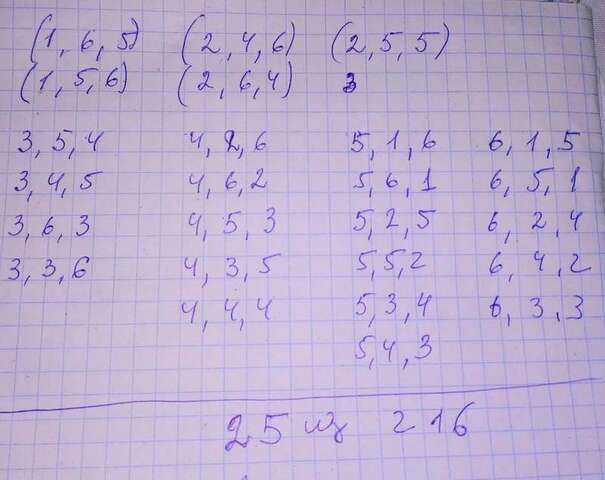 (1, 6, 5) (2, 4, 6) (2, 5, 5)
(1, 5, 6) (2, 6, 4) 3
3, 5, 4 4, 2, 6 5, 1, 6 6, 1, 5
3, 4, 5 4, 6, 2 5, 6, 1 6, 5, 1
3, 6, 3 4, 5, 3 5, 2, 5 6, 2, 4
3, 3, 6 4, 3, 5 5, 5, 2 6, 4, 2
4, 4, 4 5, 3, 4 6, 3, 3
5, 4, 3
25 из 216